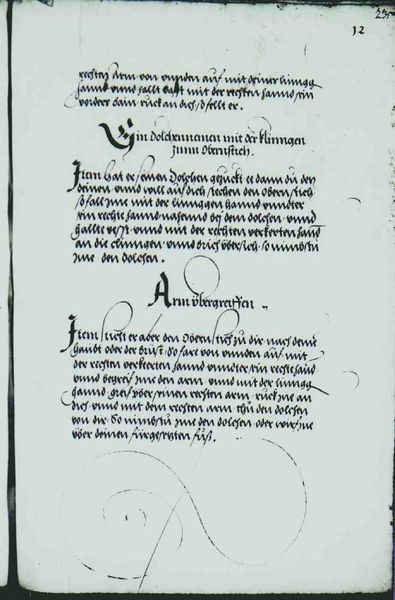 12
rechten Arm von unnden auf mit deiner linngg
hannd unnd fallt vasst mit der rechten hannd sein
vordere ruck an dich so fellt er.
Ein dolchennemen mit der klinngen
zum Obernstich.
Item hat er seinen Dolchen gezuckt er dann du den
deinen unnd will auf dich stechen den Obern stich
so fall Ime mit der linnggen hannd unndter
sein rechte hannd bei dem dolchen unnd
hallte vesst unnd mit der rechten verkerten hand
an die clinngen unnd brich übersich so nimbstu
Ime den Dolchen.
Arm übergreiffen
Item sticht er aber den Obern stich zu dir nach dem
haubt oder der brust So far von unnden auf mit
der rechten verkerten hannd unnder sein rechte hand
unnd begreif Ime den arm unnd mit der lingg
hannd greif über seinen rechten arm ruck Ine an
dich unnd mit dem rechten arm thu den dolchen
von dir So nimbstu Ime den dolchen oder wirf Ine
über deinen fürgesetzten fuß.